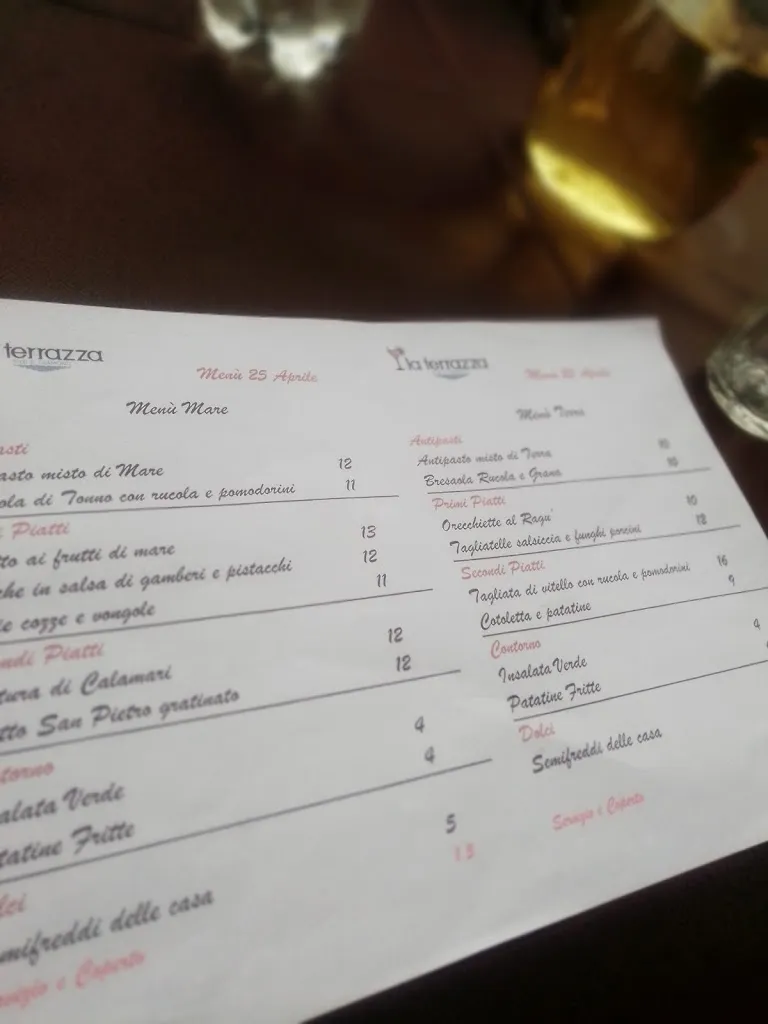 terrazza
Menù 25 Aprile
Menù Mare
asti
asto misto di Mare 12
ola di Tonno con rucola e pomodorini 11
i Piatti
tto ai frutti di mare 13
che in salsa di gamberi e pistacchi 12
ie cozze e vongole 11
ndi Piatti
tura di Calamari 12
tto San Pietro gratinato 12
torno
alata Verde 4
tatine Fritte 4
lci
mifreddi delle casa 5
rvizio e Coperto
la terrazza
Menù 25 Aprile
Menù Terra
Antipasti
Antipasto misto di Terra 10
Bresaola Rucola e Grana 10
Primi Piatti
Orecchiette al Ragu' 10
Tagliatelle salsiccia e funghi porcini 12
Secondi Piatti
Tagliata di vitello con rucola e pomodorini 16
Cotoletta e patatine 9
Contorno
Insalata Verde 4
Patatine Fritte
Dolci
Semifreddi delle casa
Servizio e Coperto